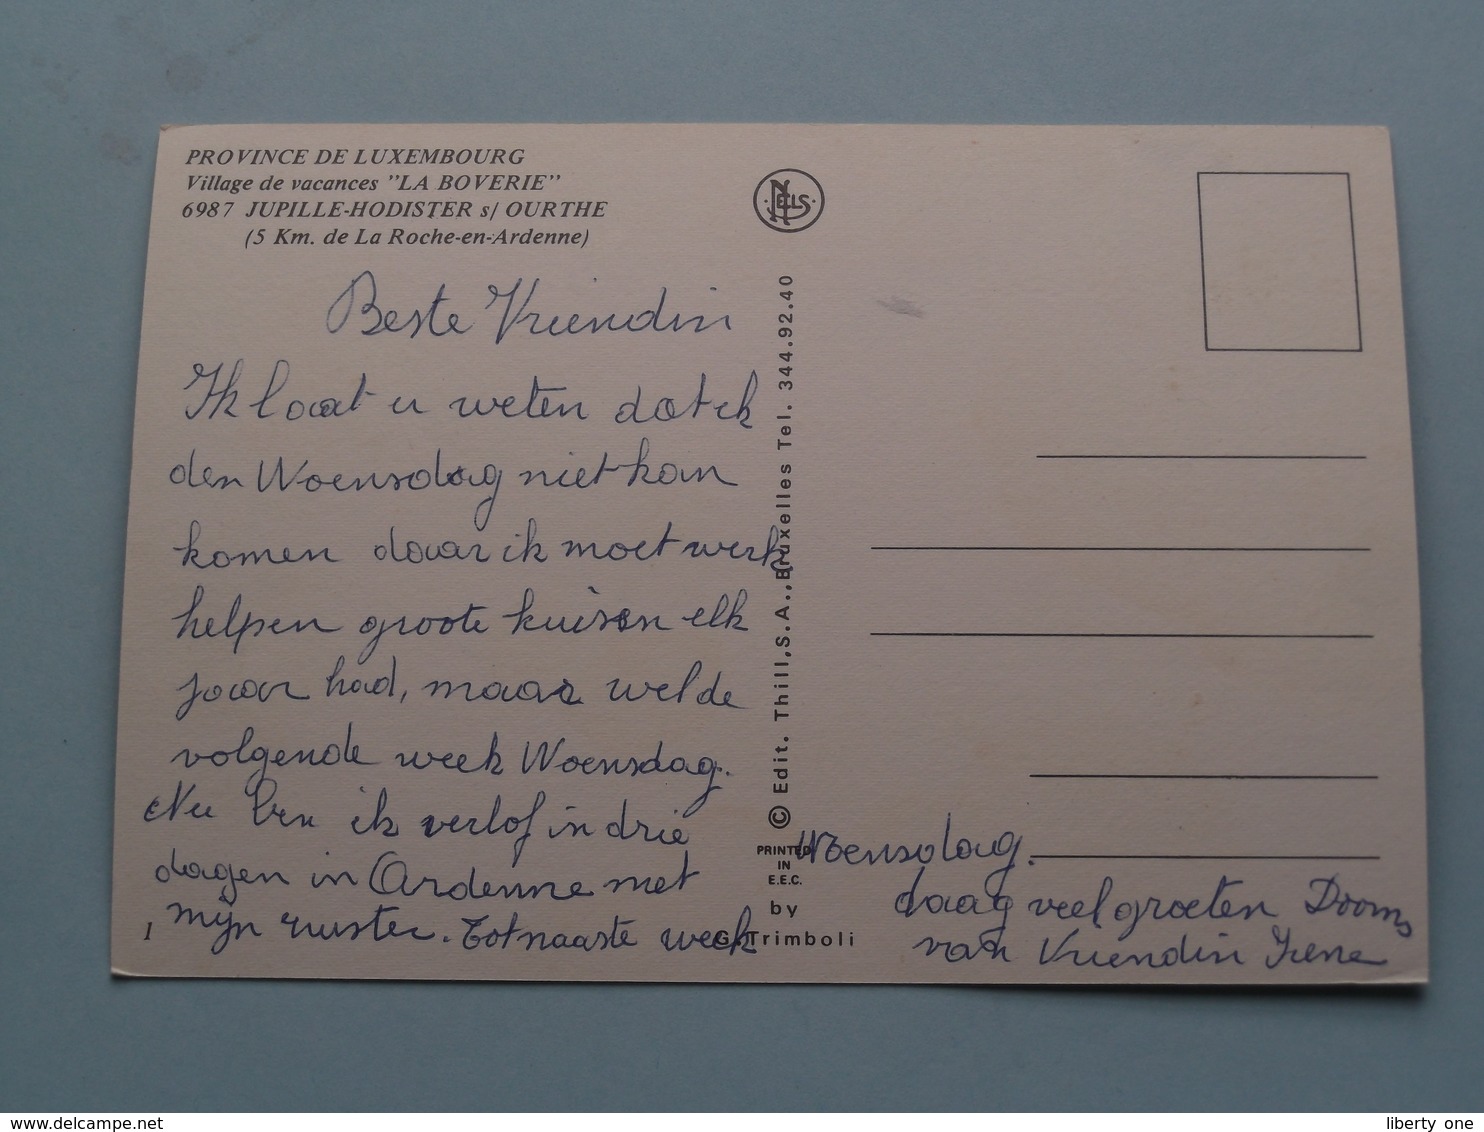 PROVINCE DE LUXEMBOURG
Village de vacances "LA BOVERIE"
6987 JUPILLE-HODISTER s/ OURTHE
(5 Km. de La Roche-en-Ardenne)
NELS
Beste Vriendin
Ik laat u weten dat ik
den Woensdag niet kan
komen daar ik moet werk
helpen groote kuisen elk
jaar had, maar wel de
volgende week Woensdag.
Nu ben ik verlof in drie
dagen in Ardenne met
mijn zuster. Tot naaste week
1
© Edit. Thill, S.A., Bruxelles Tel. 344.92.40
PRINTED
IN
E.E.C.
by
G. Trimboli
Woensdag.
daag veel groeten Dooms
van Vriendin Irene
www.delcampe.net
liberty one